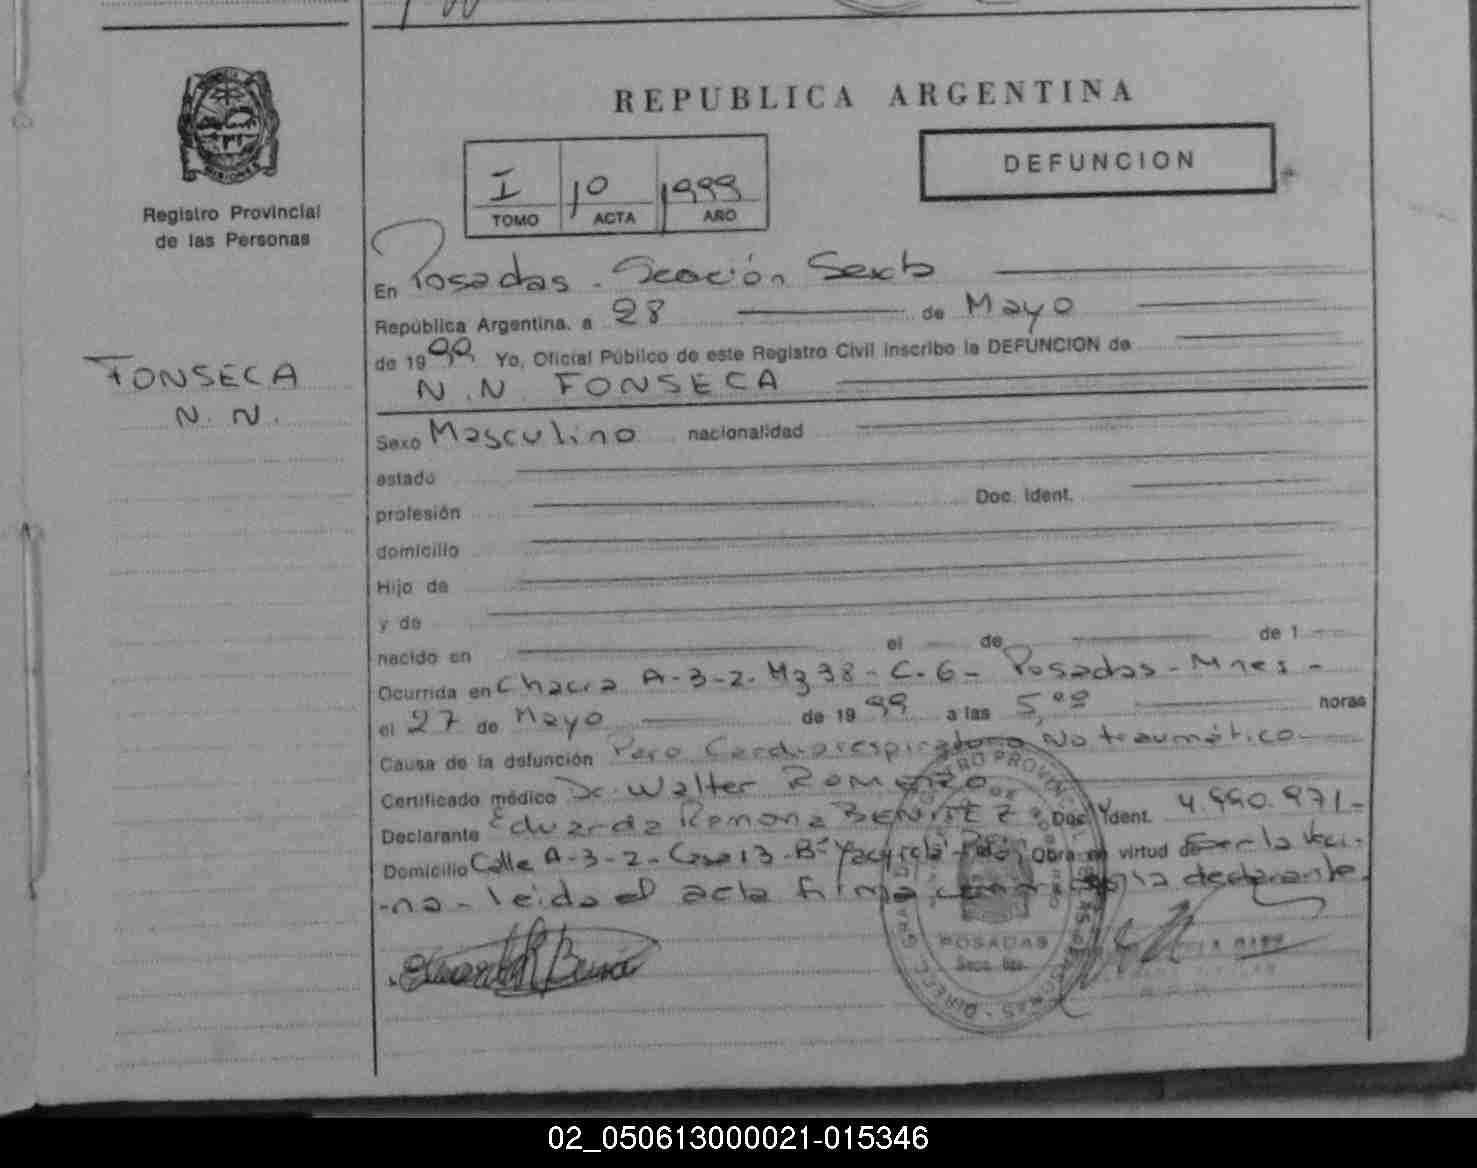 REPUBLICA ARGENTINA
MISIONES
Registro Provincial
de las Personas
I 10 1999
TOMO ACTA AÑO
DEFUNCION
En Posadas - Sección Sexta
República Argentina, a 28 de Mayo
de 1999 Yo, Oficial Público de este Registro Civil inscribo la DEFUNCION de
N.N. FONSECA
FONSECA
N. N.
Sexo Masculino nacionalidad
estado
profesión Doc. Ident.
domicilio
Hijo de
y de
nacido en el de de 1
Ocurrida en Chacra A-3-2. Mz 38 - C. 6 - Posadas - Mnes -
el 27 de Mayo de 1999 a las 5,00 horas
Causa de la defunción Paro Cardiorespiratorio No traumático
Certificado médico Dr. Walter
Declarante Eduarda Ramona BENITEZ Doc. Ident. 4.990.971-
Domicilio Calle A-3-2- Casa 13 - Bº Yacyretá - Obra en virtud de Ser la Veci-
-na - leida el acta firma la declarante
POSADAS
Secc. 6ta.
02_050613000021-015346